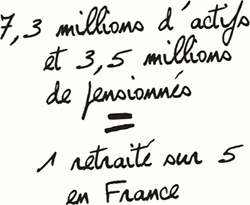 7,3 millions d'actifs
et 3,5 millions
de pensionnés
=
1 retraité sur 5
en France